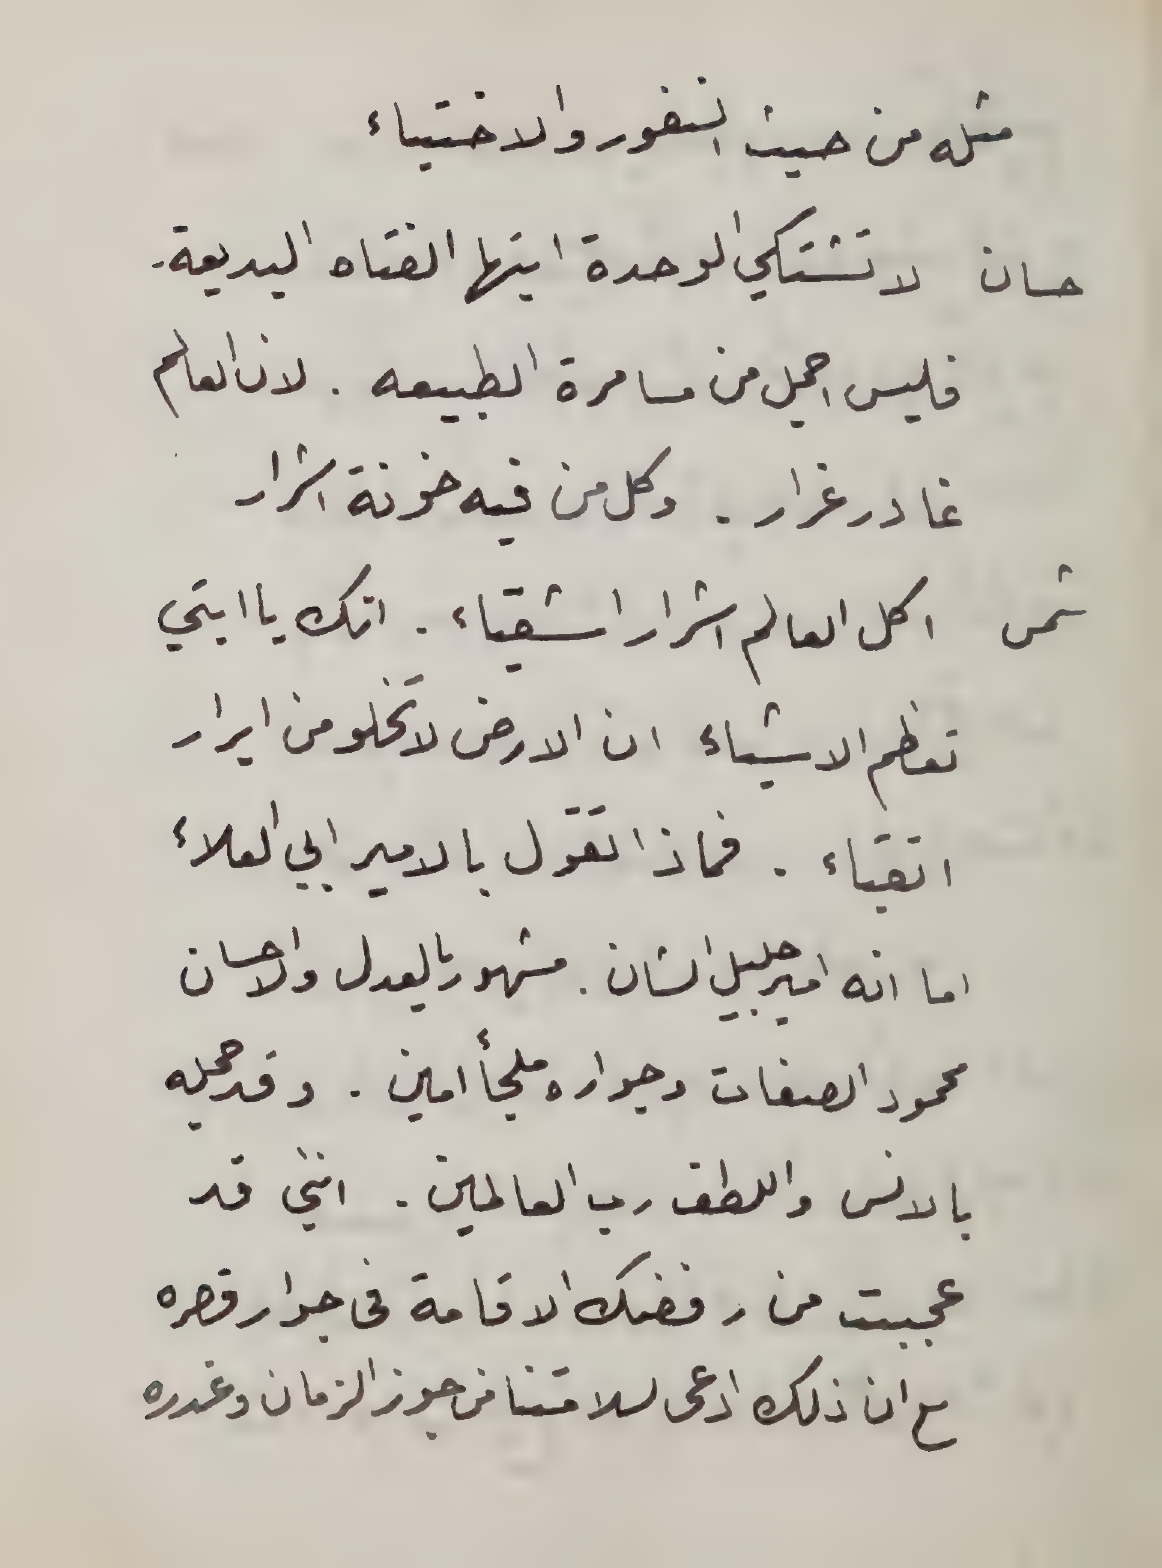 مثله من حيث النفور والاختباء
حسان لا تشتكي الوحدة ايتها الفتاه البديعة.
فليس اجمل من مسامرة الطبيعه . لان العالم
غادر غرار . وكل من فيه خونة اشرار
شمس اكل العالم اشرار اشقياء . انك يا ابتي
تعظم الاشياء ان الارض لا تخلو من ابرار
اتقياء . فماذا تقول بالامير ابي العلاء
اما انه امير جليل الشان . مشهور بالعدل والاحسان
محمود الصفات وجواره ملجأ امين . وقد جمله
بالانس واللطف رب العالمين . انني قد
عجبت من رفضك الاقامة في جوار قصره
مع ان ذلك ادعى لسلامتنا من جور الزمان وغدره